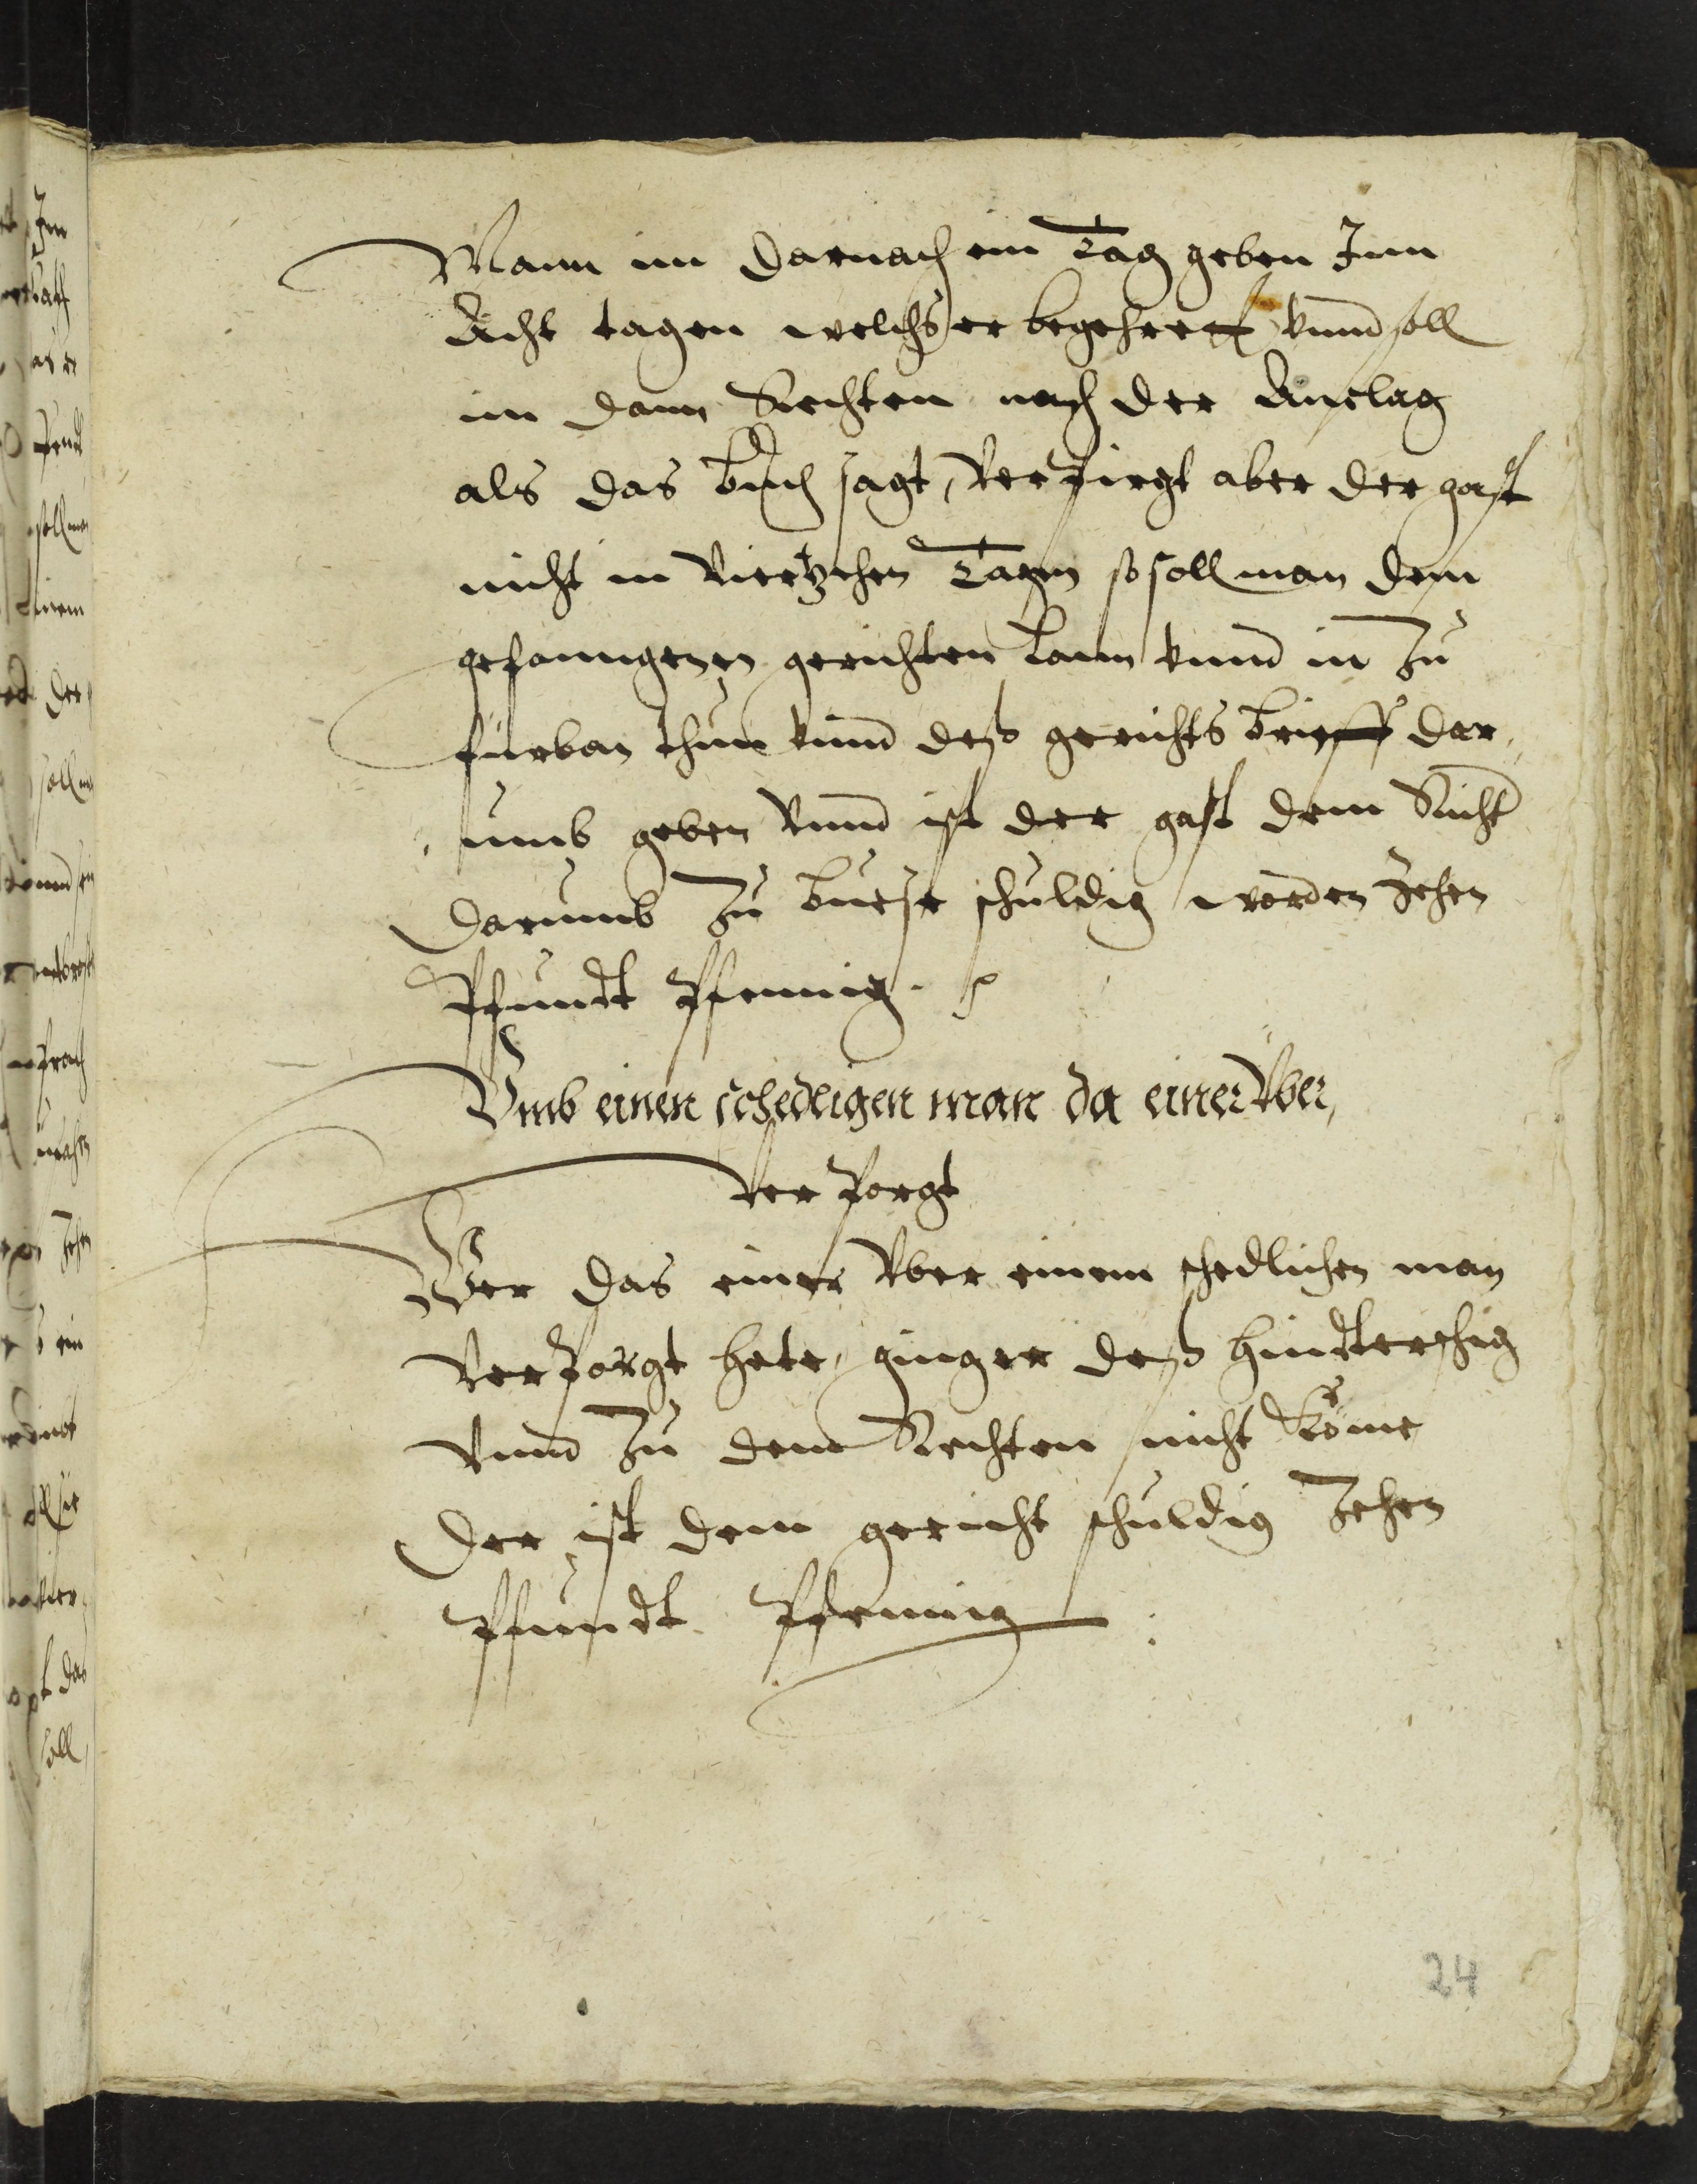 Mann im darnach ein Tag geben Inn
Acht tagen welchs er begehrett vnnd soll
im dann Rechten nach der Anclag
als das buch sagt, Verzirgt aber der gast
nicht in Viertzehen Tagen so soll man dem
gefanngenen gerichten Lann vnnd in zu
fürban thun vnnd deß gerichts brieff dar,
umb geben Vnnd ist der gast dem Richt
darumb zu buese schuldig worden Zehen
Pfundt Pfennig.
Vmb einen schedligen man da einer Vber,
Ver porgt
Wer das einer Vber einem schedlichen man
Verporgt hete, ginger deß hindterschig
Vnnd zu dem Rechten nicht Köme
Der ist dem gericht schuldig Zehen
Pfundt Pfennig
24